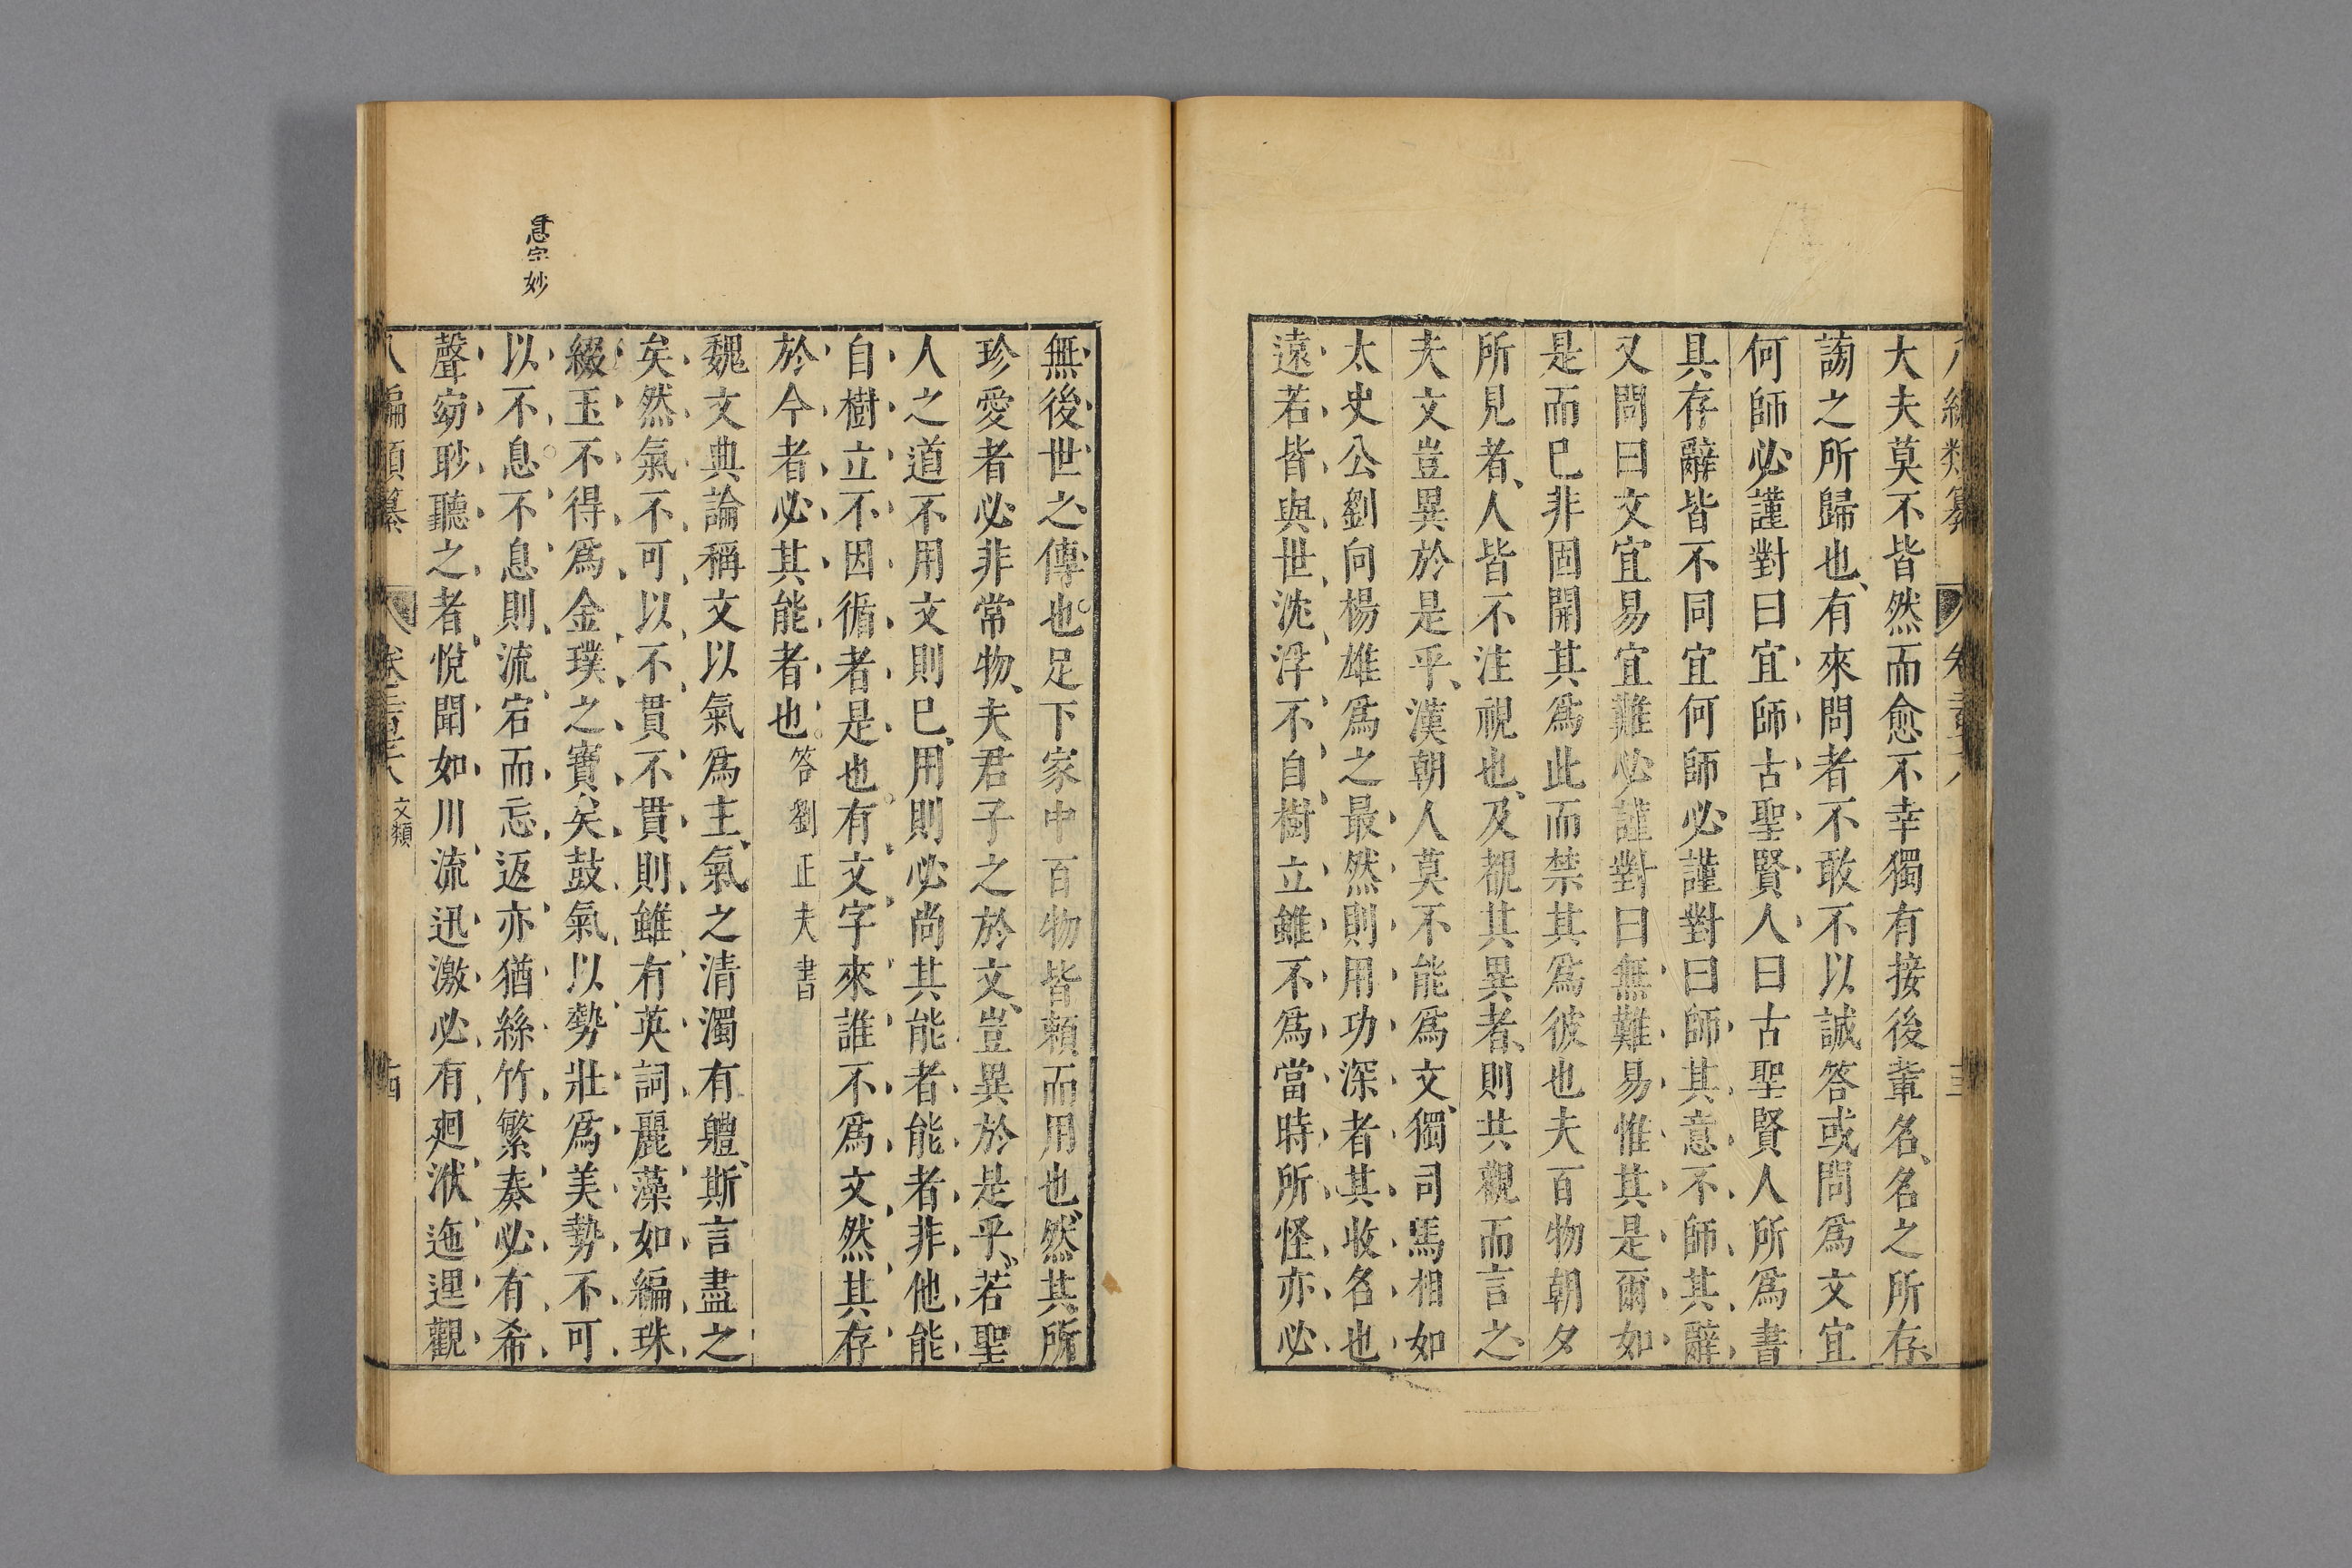 大夫莫不皆然而愈不幸獨有接後輩名、名之所存、
謗之所歸也、有來問者不敢不以誠答或問爲文宜
何師必謹對曰宜師古聖賢人曰古聖賢人所爲書
具存辭皆不同宜何師必謹對曰師其意不師其辭
又問曰文宜易宜難必謹對曰無難易惟其是爾如
是而已非固開其爲此而禁其爲彼也夫百物朝夕
所見者、人皆不注視也、及覩其異者、則共觀而言之
夫文豈異於是乎、漢朝人莫不能爲文、獨司馬相如
太史公劉向楊雄爲之最然則用功深者其收名也
遠若皆與世沈浮不自樹立雖不爲當時所怪亦必
無後世之傳也。足下家中百物皆頼而用也、然其所
珍愛者必非常物、夫君子之於文、豈異於是乎、若聖
人之道不用文則已、用則必尚其能者能者非他能
自樹立不因循者是也。有文字來誰不爲文然其存
於今者必其能者也。答劉正夫書
魏文典論稱文以氣爲主、氣之清濁有體、斯言盡之
矣然氣不可以不貫不貫則雖有英詞麗藻如編珠
綴玉不得爲金璞之寶矣鼓氣以勢壯爲美勢不可
以不息。不息則流宕而忘返亦猶絲竹繁奏必有希
聲窈眇聽之者悅聞如川流迅激必有廻洑逶迤觀
息字妙
八編類纂 卷 文類 十四